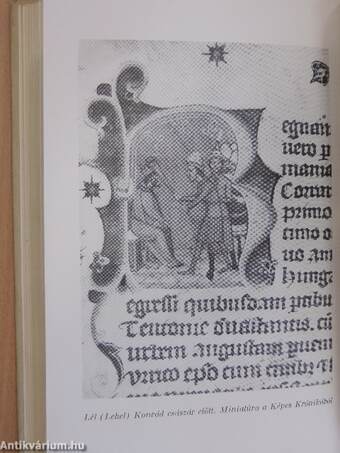 egnan
uero p
mania
Conrar
primo
cimo o
uo an
hunga
egressi quibusdam ptibu
Teutonie cū
urbem augustam
vrico cum
Lél (Lehel) Konrád császár előtt. Miniatúra a Képes Krónikából
Antikvárium.hu